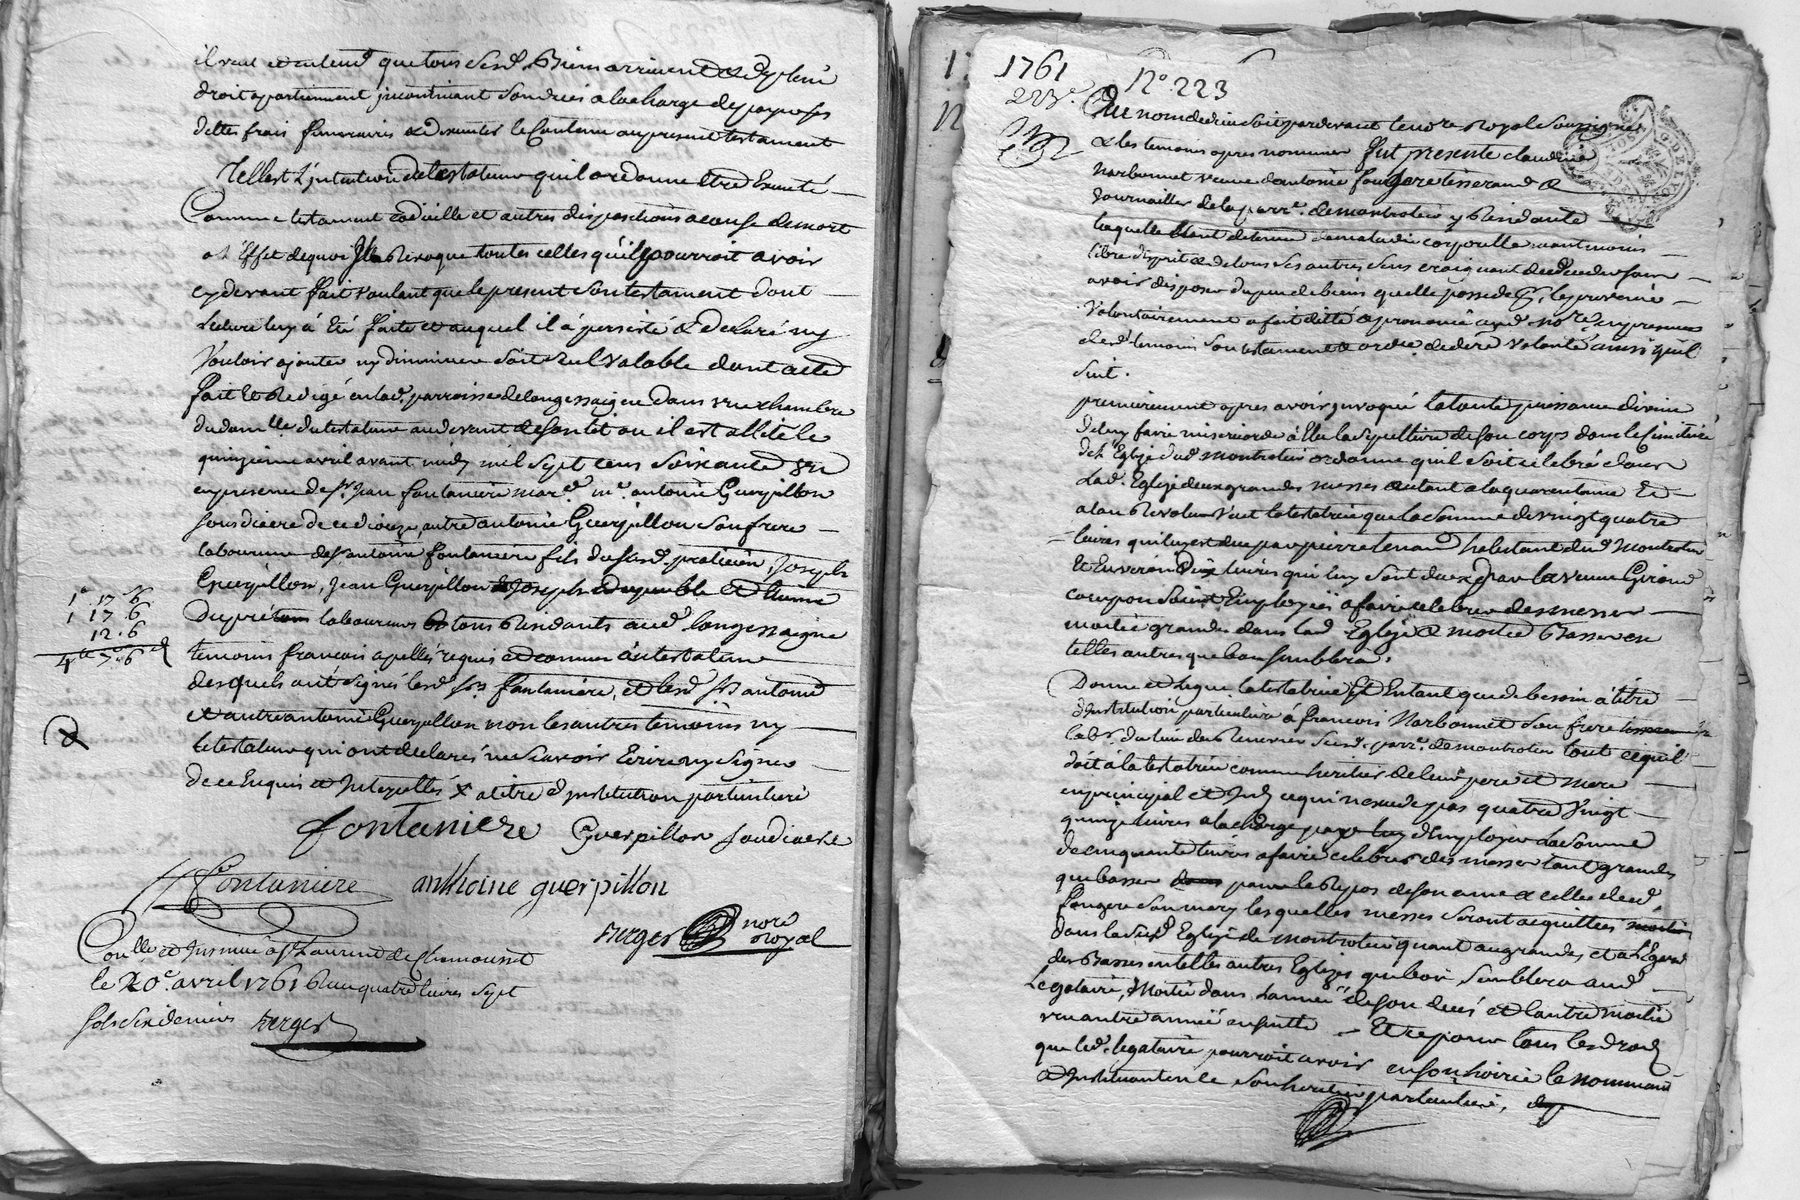 il veut et entend que tous sesd. Biens arrivent et de plein
droit apartiennent incontinant son deces a la charge de payer ses
dettes frais funeraires et d'executer le contenu au present testament
Telle est l'intention de testateur qu'il ordonne etre Executé
Comme testament codicille et autres dispositions a cause de mort
a l'Effet de quoi Il a Revoque toutes celles qu'il pourroit avoir
cy devant fait voulant que le present son testament dont
lecture luy à été faite et auquel il à persisté & declaré ny
Vouloir ajouter ny diminuer soit seul valable dont acte
fait et Redigé en lad. parroisse de longessaigne dans une chambre
du domlle du testateur au devant de son lit ou il est allité le
quinzieme avril avant midy mil sept cens soixante un
en presence de sr Jean fontaniere mard. mr. antoine Guerpillon
sousdiacre de ce dioceze, autre antoine Guerpillon son frere
laboureur de sr antoine fontaniere fils dususd. praticien, Joseph
Guerpillon, Jean Guerpillon
Dupré laboureurs tous Residants aud. longessaigne
1# 17s 6
1 17 6
12 6
4# 7s 6d
temoins francois apellés requis et connus du testateur
desquels ont signés lesd. srs fontaniere, et lesd. srs antoine
et autre antoine Guerpillon non les autres temoins ny
le testateur qui ont declarés ne scavoir Ecrire ny signer
de ce Enquis et Interpellés x a titre d'Institution particuliere
fontaniere Guerpillon soudiacre
Fontaniere anthoine guerpillon
Berger nore
royal
Conllé et Insinué a St Laurent de Chamousset
le 20e. avril 1761 Reçu quatre livres sept
sols six deniers Berger
1761
223e.
No. 223
Au nom de dieu soit pardevant le nore Royal soussigné
& les temoins apres nommés fut presente claudine
Narbonnet veuve d'antoine fougere tisserand &
journallier de la parre. de montrotier y Residante
laquelle etant detenue de maladie corporelle neant moins
libre d'esprit et de tous ses autres sens craignant de deceder sans
avoir disposer du peu de biens quelle possede
Volontairement a fait ditté & prononcé aud. nore. en presence
desd. temoins son testament & ordre. de dere Volonté ainsi quil
suit.
premierement apres avoir invoqué la toute puissance divine
de luy faire misericorde à Elu la sepulture de son corps dans le cimetiere
de l'Eglize dud. montrotier ordonne quil soit celebré dans
lad. Eglize deux grandes messes autant a la quarantaine Et
a l'an Revolu veut la testatrice que la somme de vingt quatre
livres qui luy est due par pierre tenand habitant dud. Montrotier
et Environ dix livres qui luy sont dues par la veuve Giroud
soient Employée a faire celebrer des messes
moitié grandes dans lad. Eglize & moitié Basses en
telles autres que bon semblera.
Donne et legue la testatrice Et Entant que de besoin à titre
d'Institution particuliere à francois Narbonnet son frere
labr. du lieu de susd. parre. de montrotier tout ce quil
doit à la testatrice comme heritier de leur pere et mere
en principal et Int. ce qui n'excede pas quatre vingt
quinze livres a la charge par luy d'Employer la somme
de cinquante livres a faire celebrer des messes tant grandes
que basses pour le Repos de son ame & celle dud.
fougere son mary lesquelles messes seront acquittées
dans la susd. Eglize de montrotier quant aux grandes et a l'Egard
des Basses en telles autres Eglizes que bon semblera aud.
Legataire, Moitié dans l'année de son decés et l'autre moitié
une autre année ensuitte Et ce pour tous les droits
que led. legataire pourroit avoir en son hoirie le nommant
& Instituant en ce son heritier particulier,